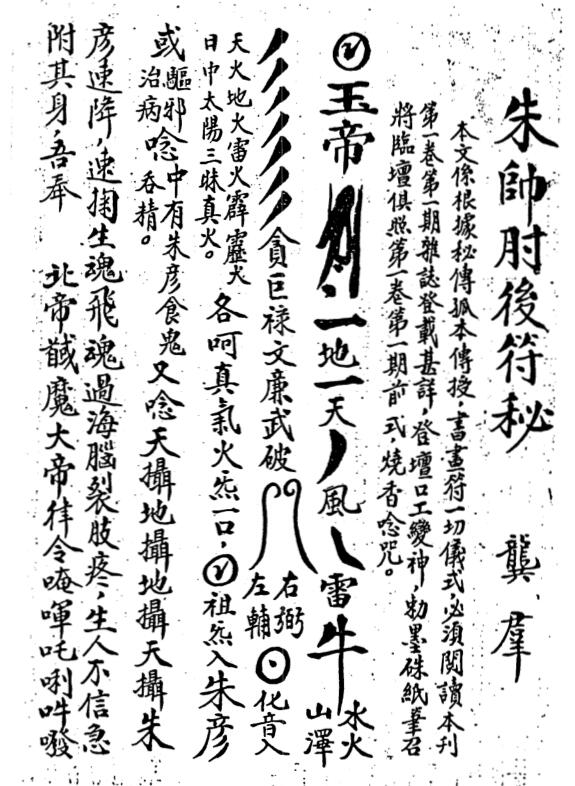 朱帥肘後符秘　龔羣
本文係根據秘傳孤本傳授，書畫符一切儀式，必須閱讀本刊
第一卷第一期雜誌登載甚詳，登壇口工變神，勅墨硃紙筆召
將臨壇俱照第一卷第一期前式，燒香唸咒。
玉帝　一地一天　風　雷　水火山澤
貪巨祿文廉武破　右弼左輔　化音入
天火地火雷火霹靂火日中太陽三昧真火。各呵真氣火炁一口，祖炁入朱彥
或驅邪治病唸中有朱彥食鬼吞精。又唸天攝地攝地攝天攝朱
彥速降，速掬生魂飛魂過海腦裂肢疼，生人不信急
附其身，吾奉　北帝馘魔大帝律令唵啤吒唎吽嚽